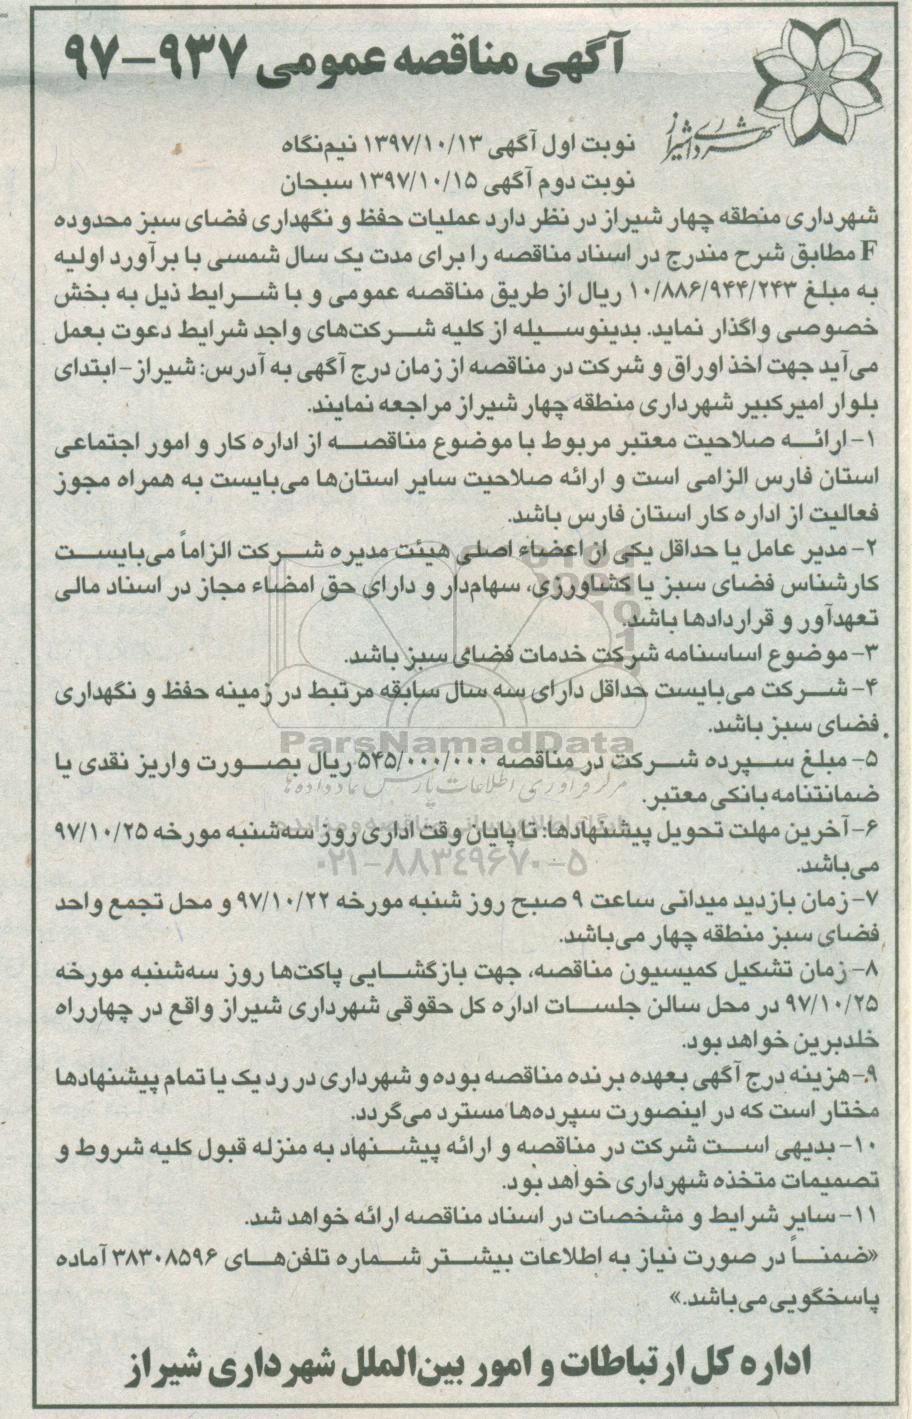 آگهی مناقصه عمومی ۹۳۷-۹۷
شهرداری شیراز
نوبت اول آگهی ۱۳۹۷/۱۰/۱۳ نیم‌نگاه
نوبت دوم آگهی ۱۳۹۷/۱۰/۱۵ سبحان
شهرداری منطقه چهار شیراز در نظر دارد عملیات حفظ و نگهداری فضای سبز محدوده
F مطابق شرح مندرج در اسناد مناقصه را برای مدت یک سال شمسی با برآورد اولیه
به مبلغ ۱۰/۸۸۶/۹۴۴/۲۴۳ ریال از طریق مناقصه عمومی و با شرایط ذیل به بخش
خصوصی واگذار نماید. بدینوسیله از کلیه شرکت‌های واجد شرایط دعوت بعمل
می‌آید جهت اخذ اوراق و شرکت در مناقصه از زمان درج آگهی به آدرس: شیراز- ابتدای
بلوار امیرکبیر شهرداری منطقه چهار شیراز مراجعه نمایند.
۱- ارائه صلاحیت معتبر مربوط با موضوع مناقصه از اداره کار و امور اجتماعی
استان فارس الزامی است و ارائه صلاحیت سایر استان‌ها می‌بایست به همراه مجوز
فعالیت از اداره کار استان فارس باشد.
۲- مدیر عامل یا حداقل یکی از اعضاء اصلی هیئت مدیره شرکت الزاماً می‌بایست
کارشناس فضای سبز یا کشاورزی، سهام‌دار و دارای حق امضاء مجاز در اسناد مالی
تعهدآور و قراردادها باشد.
۳- موضوع اساسنامه شرکت خدمات فضای سبز باشد.
۴- شرکت می‌بایست حداقل دارای سه سال سابقه مرتبط در زمینه حفظ و نگهداری
فضای سبز باشد.
ParsNamadData
۵- مبلغ سپرده شرکت در مناقصه ۵۴۵/۰۰۰/۰۰۰ ریال بصورت واریز نقدی یا
مرکز فرآوری اطلاعات پارس نماد داده ها
ضمانتنامه بانکی معتبر.
۶- آخرین مهلت تحویل پیشنهادها: تا پایان وقت اداری روز سه‌شنبه مورخه ۹۷/۱۰/۲۵
می‌باشد.
۰۲۱-۸۸۳۴۹۶۷۰-۵
۷- زمان بازدید میدانی ساعت ۹ صبح روز شنبه مورخه ۹۷/۱۰/۲۲ و محل تجمع واحد
فضای سبز منطقه چهار می‌باشد.
۸- زمان تشکیل کمیسیون مناقصه، جهت بازگشایی پاکت‌ها روز سه‌شنبه مورخه
۹۷/۱۰/۲۵ در محل سالن جلسات اداره کل حقوقی شهرداری شیراز واقع در چهارراه
خلدبرین خواهد بود.
۹- هزینه درج آگهی بعهده برنده مناقصه بوده و شهرداری در رد یک یا تمام پیشنهادها
مختار است که در اینصورت سپرده‌ها مسترد می‌گردد.
۱۰- بدیهی است شرکت در مناقصه و ارائه پیشنهاد به منزله قبول کلیه شروط و
تصمیمات متخذه شهرداری خواهد بود.
۱۱- سایر شرایط و مشخصات در اسناد مناقصه ارائه خواهد شد.
«ضمناً در صورت نیاز به اطلاعات بیشتر شماره تلفن‌های ۳۸۳۰۸۵۹۶ آماده
پاسخگویی می‌باشد.»
اداره کل ارتباطات و امور بین‌الملل شهرداری شیراز